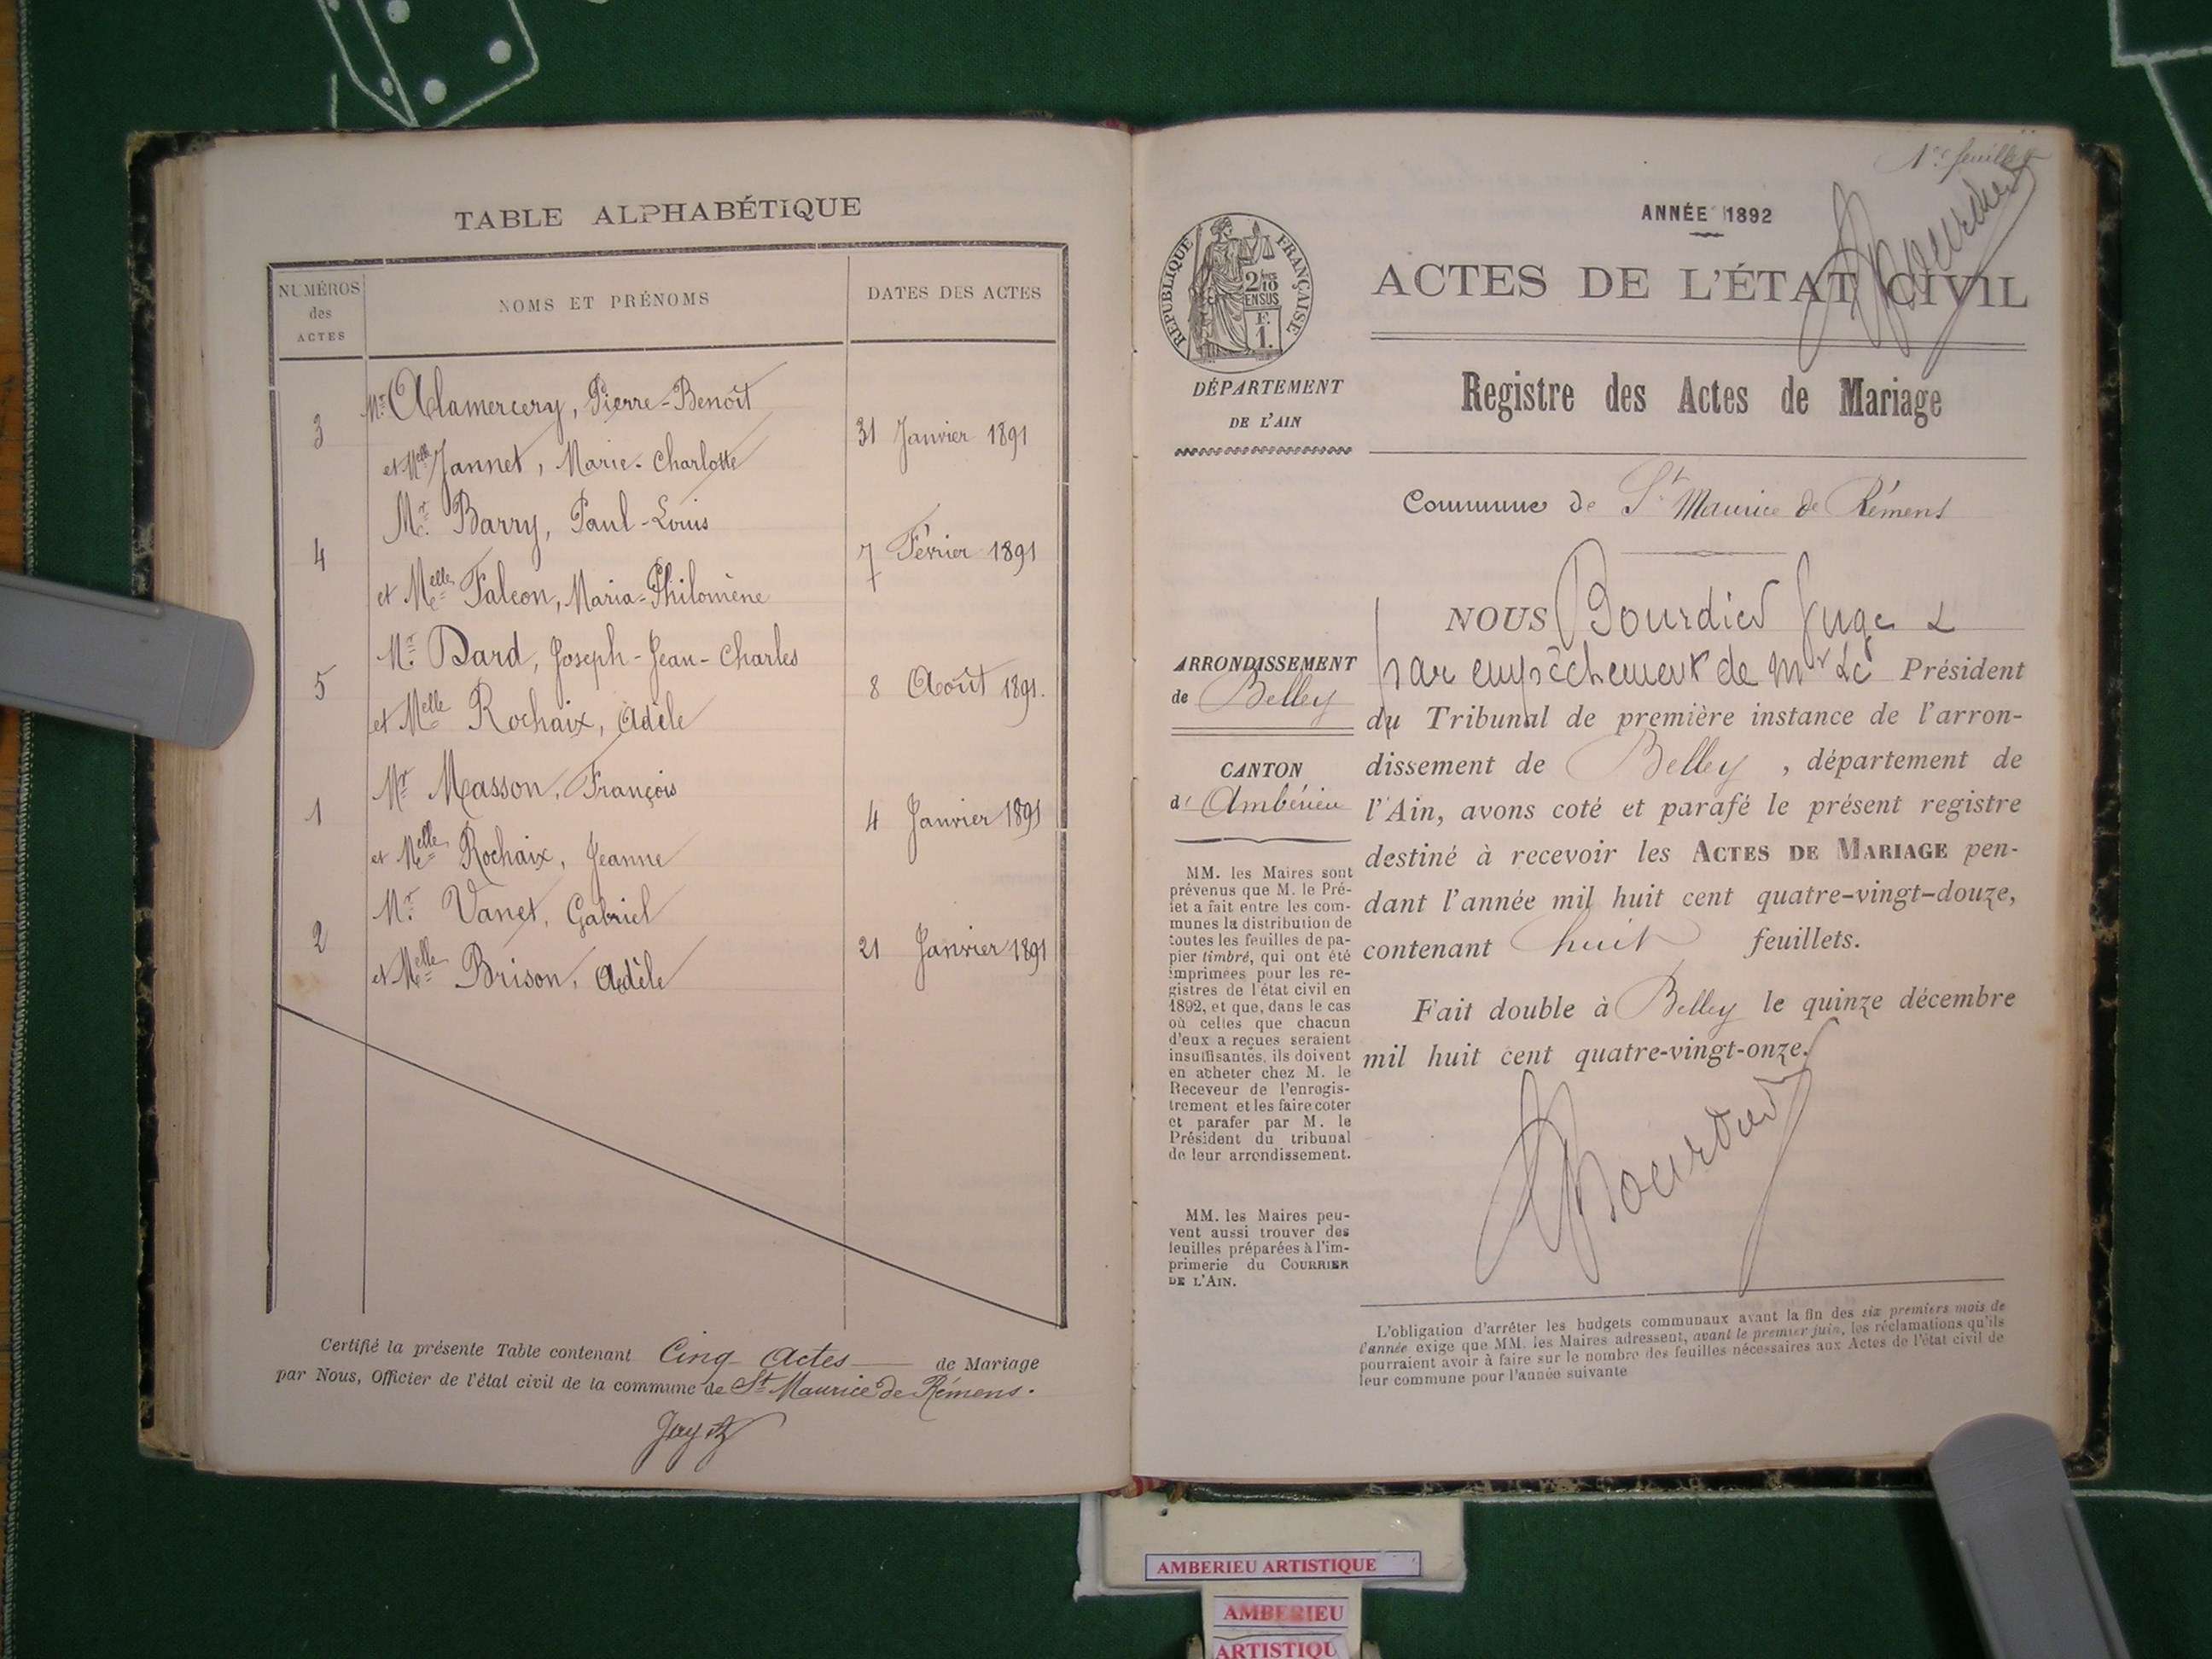 TABLE ALPHABÉTIQUE
NUMÉROS
des
ACTES
NOMS ET PRÉNOMS
DATES DES ACTES
3
Mr. Alamercery, Pierre-Benoît
et Melle Jannet, Marie-Charlotte
31 Janvier 1891
4
Mr. Barry, Paul-Louis
et Melle Falcon, Maria-Philomène
7 Février 1891
5
Mr. Dard, Joseph-Jean-Charles
et Melle Rochaix, Adèle
8 Août 1891.
1
Mr Masson, François
et Melle Rochaix, Jeanne
4 Janvier 1891
2
Mr. Vanet, Gabriel
et Melle Brison, Adèle
21 Janvier 1891
Certifié la présente Table contenant Cinq Actes de Mariage
par Nous, Officier de l'état civil de la commune de St Maurice de Rémens.
1er feuillet
ANNÉE 1892
RÉPUBLIQUE FRANÇAISE
2/10
EN SUS
F.
1.
ACTES DE L'ÉTAT CIVIL
DÉPARTEMENT
DE L'AIN
Registre des Actes de Mariage
Commune de St Maurice de Rémens
ARRONDISSEMENT
de Belley
CANTON
d' Ambérieu
MM. les Maires sont
prévenus que M. le Pré-
fet a fait entre les com-
munes la distribution de
toutes les feuilles de pa-
pier timbré, qui ont été
imprimées pour les re-
gistres de l'état civil en
1892, et que, dans le cas
où celles que chacun
d'eux a reçues seraient
insuffisantes, ils doivent
en acheter chez M. le
Receveur de l'enregis-
trement et les faire coter
et parafer par M. le
Président du tribunal
de leur arrondissement.
MM. les Maires peu-
vent aussi trouver des
feuilles préparées à l'im-
primerie du COURRIER
DE L'AIN.
NOUS Bourdier Juge
par empêchement de Mr Le Président
du Tribunal de première instance de l'arron-
dissement de Belley, département de
l'Ain, avons coté et parafé le présent registre
destiné à recevoir les ACTES DE MARIAGE pen-
dant l'année mil huit cent quatre-vingt-douze,
contenant huit feuillets.
Fait double à Belley le quinze décembre
mil huit cent quatre-vingt-onze.
Bourdier
L'obligation d'arrêter les budgets communaux avant la fin des six premiers mois de
l'année exige que MM. les Maires adressent, avant le premier juin, les réclamations qu'ils
pourraient avoir à faire sur le nombre des feuilles nécessaires aux Actes de l'état civil de
leur commune pour l'année suivante
AMBERIEU ARTISTIQUE
AMBERIEU
ARTISTIQU